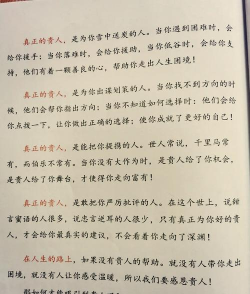 真正的贵人，是为你雪中送炭的人。当你遇到困难时，会
给你援手；当你落难时，会给你援助，当你低谷时，会给你支
持，他们有着一颗善良的心，帮助你走出人生困境！
真正的贵人，是为你出谋划策的人。当你找不到方向的时
候，他们会帮你指出方向；当你不知道如何选择时；他们会给
你点拨一下，让你做出正确的选择；使你成就了更好的自己！
真正的贵人，是能把你提携的人。世人常说，千里马常
有，而伯乐不常有。当你没有大作为时，是贵人给了你机会，
是贵人给了你舞台，才使得你走向富有！
真正的贵人，是敢把你严厉批评的人。在这个世上，说甜
言蜜语的人很多，说忠言逆耳的人很少，只有真正为你好的贵
人，才会给你最真实的建议，不会看着你走向了深渊！
在人生的路上，如果没有贵人的帮助，就没有人带你走出
困境，就没有人让你感受温暖，所以我们要感恩贵人！